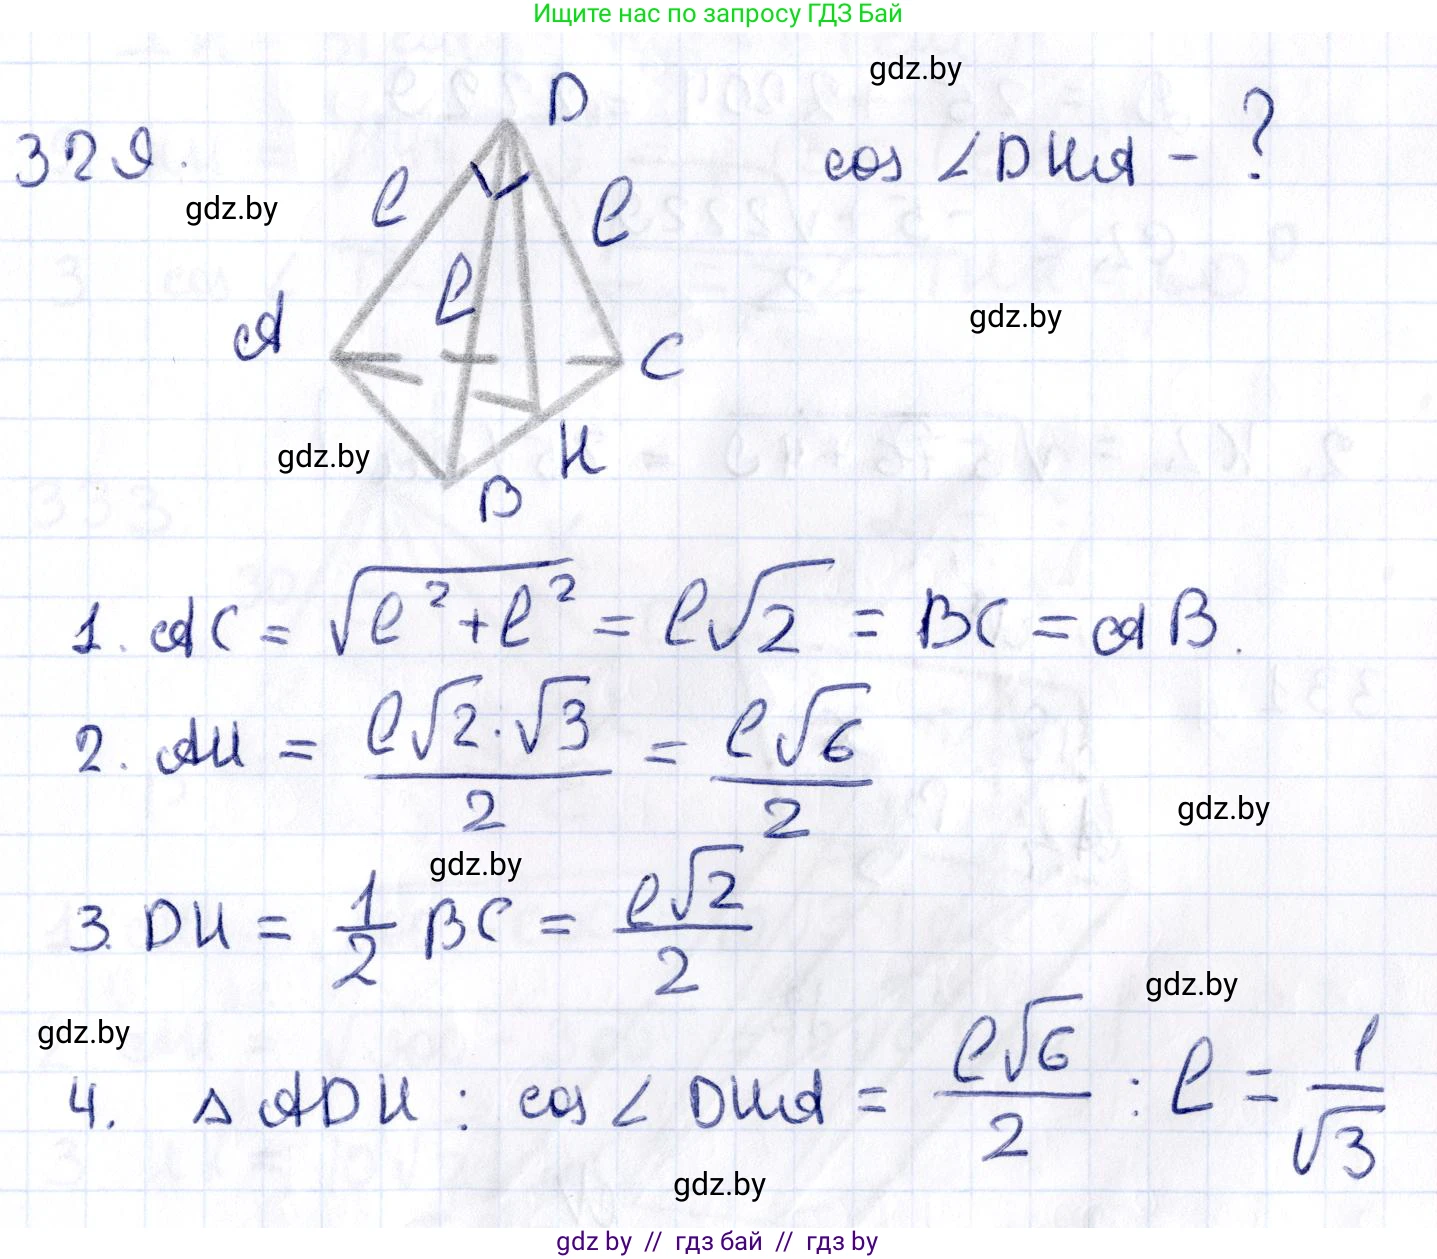 Ищите нас по запросу ГДЗ Бай
gdz.by
329.
D
cos ∠DHA - ?
gdz.by
l
l
l
A
C
gdz.by
gdz.by
H
B
1. AC = √(l² + l²) = l√2 = BC = AB.
2. AH = (l√2 · √3)/2 = (l√6)/2
gdz.by
gdz.by
3. DH = 1/2 BC = (l√2)/2
gdz.by
gdz.by
4. △ADH : cos ∠DHA = (l√6)/2 : l = 1/√3
gdz.by
gdz.by // гдз бай // гдз by